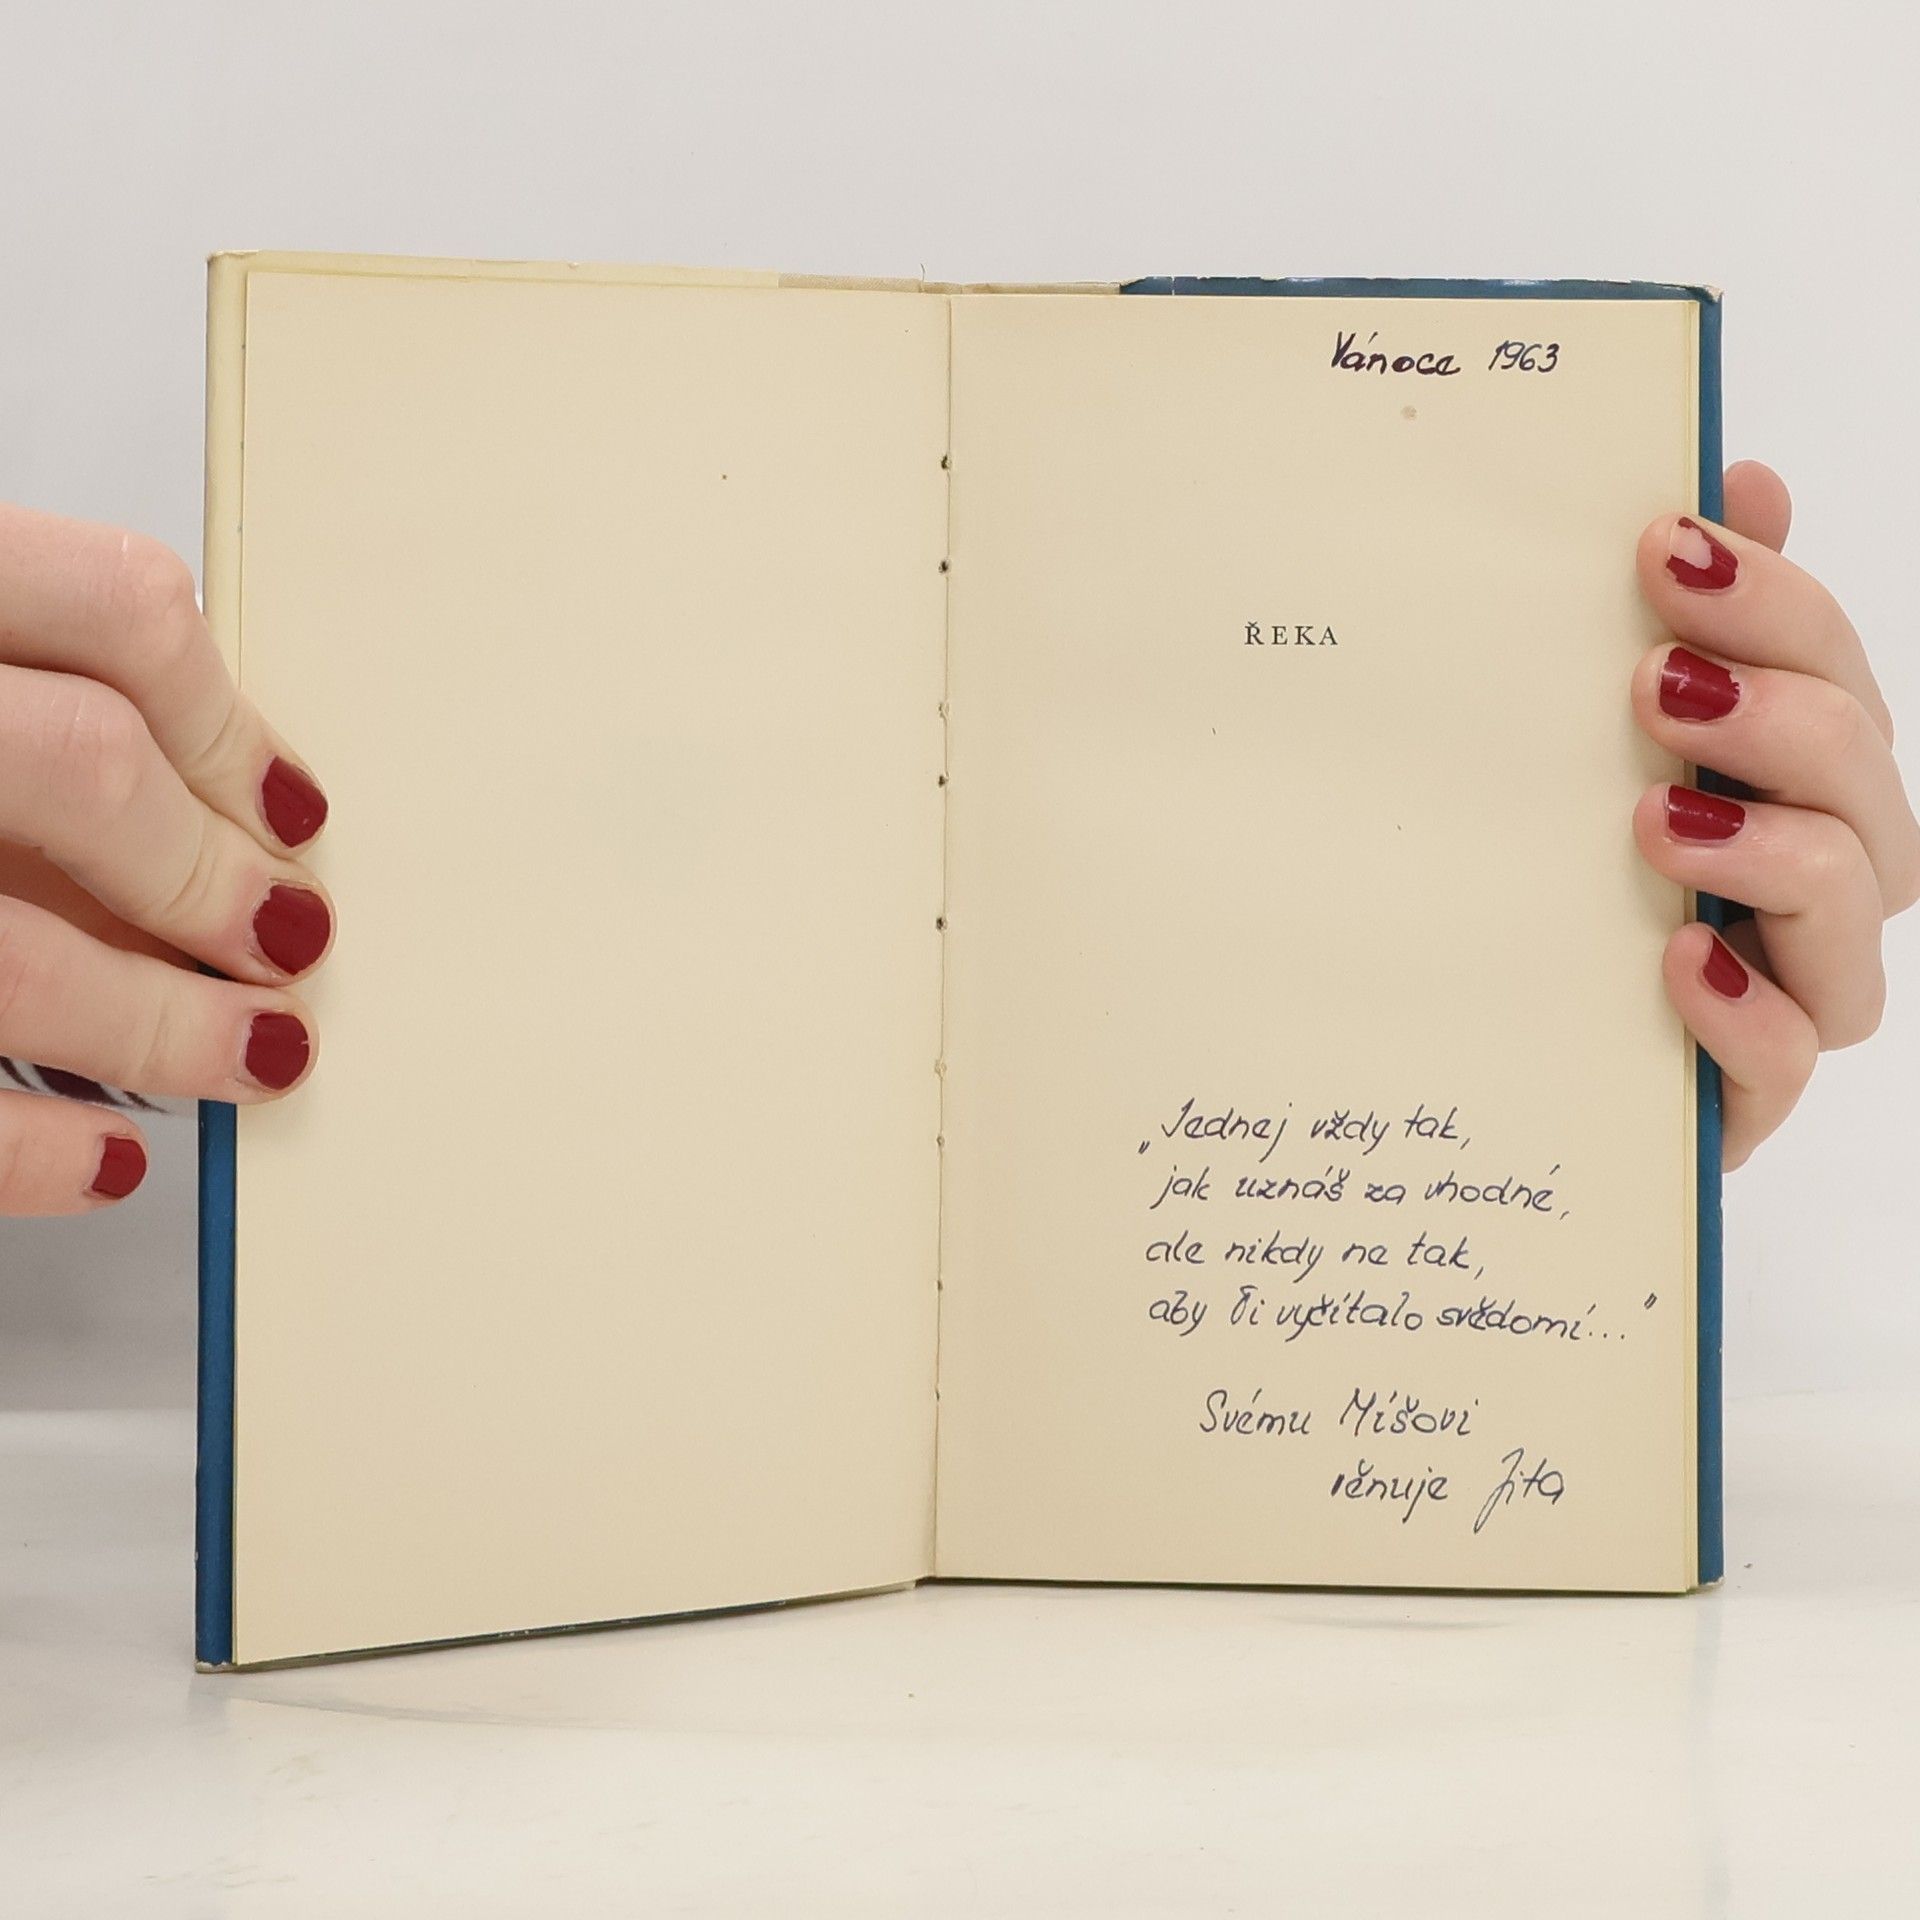 Vánoce 1963
ŘEKA
„Jednej vždy tak,
jak uznáš za vhodné,
ale nikdy ne tak,
aby Ti vyčítalo svědomí..."
Svému Míšovi
věnuje Jita